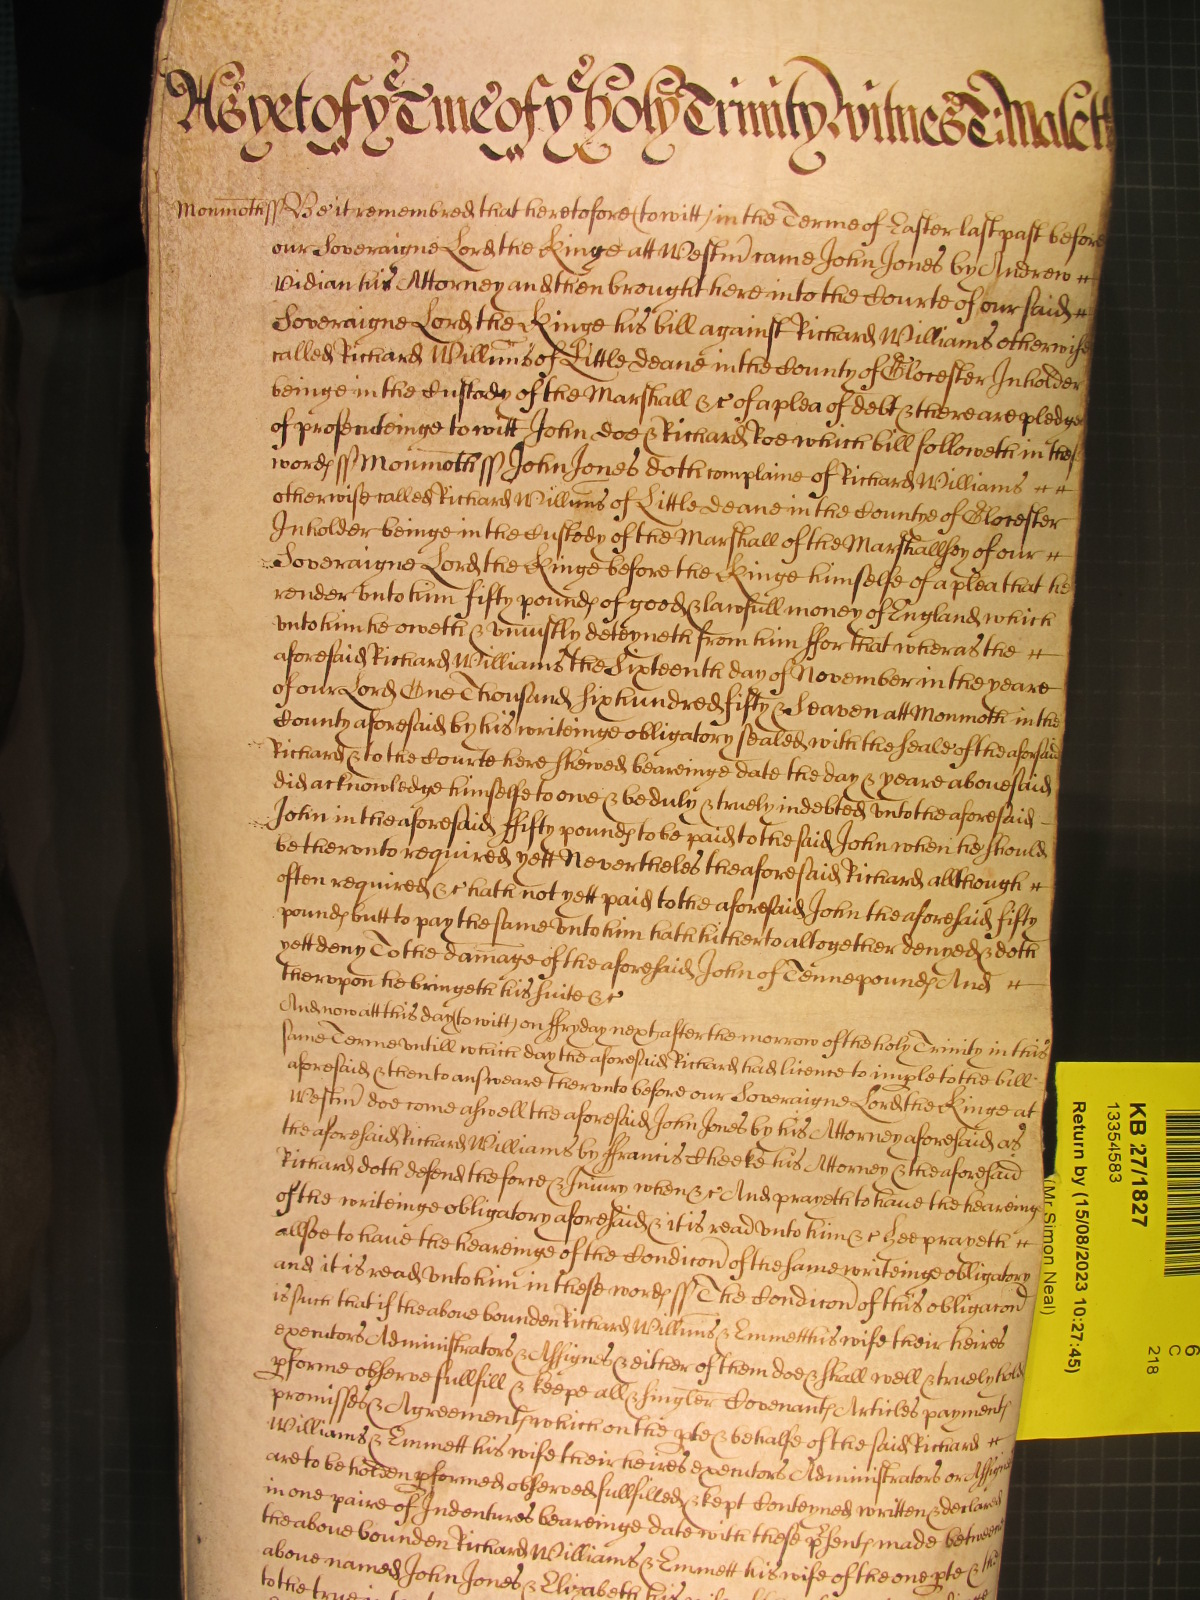 As yet of ye Tme of ye holy Trinity witnes T: Malett
Monmoth ss Be it remembred that heretofore (to witt) in the Terme of Easter last past before
our Soveraigne Lord the Kinge att Westm̄ came John Jones by Andrew
Vidian his Attorney and then brought here into the Courte of our said
Soveraigne Lord the Kinge his bill against Richard Williams otherwise
called Richard Willims of Little deane in the County of Glocester Inholder
beinge in the Custody of the Marshall &c of a plea of debt & there are pledge
of prosecuteinge to witt John doe & Richard Roe which bill followeth in thes
words ss Monmoth ss John Jones doth complaine of Richard Williams
otherwise called Richard Willims of Little deane in the Countye of Glocester
Inholder beinge in the Custody of the Marshall of the Marshallsey of our
Soveraigne Lord the Kinge before the Kinge himselfe of a plea that he
render vnto him fifty pounds of good & lawfull money of England which
vnto him he oweth & vniustly deteyneth from him ffor that wheras the
aforesaid Richard Williams the Sixteenth day of November in the yeare
of our Lord One Thousand six hundred fifty & Seaven att Monmoth in the
County aforesaid by his writeinge obligatory sealed with the seale of the aforsaid
Richard & to the Courte here shewed beareinge date the day & yeare abovesaid
did acknowledge himselfe to owe & be duly & truely indebted vnto the aforesaid
John in the aforesaid ffifty pounds to be paid to the said John when he should
be thervnto required yett Nevertheles the aforesaid Richard allthough
often required &c hath not yett paid to the aforesaid John the aforesaid fifty
pounds butt to pay the same vnto him hath hitherto altogether denyed & doth
yett deny To the damage of the aforesaid John of Tenne pounds And
thervpon he bringeth his suite &c
And now att this day (to witt) on ffryday next after the morrow of the holy Trinity in this
same Terme vntill which day the aforesaid Richard had licence to imple to the bill
aforesaid & then to answeare thervnto before our Soveraigne Lord the Kinge at
Westm̄ doe come aswell the aforesaid John Jones by his Attorney aforesaid as
the aforesaid Richard Williams by ffrancis Cheeke his Attorney & the aforesaid
Richard doth defend the force & Iniury when &c And prayeth to haue the heareinge
of the writeinge obligatory aforesaid & it is read vnto him &c hee prayeth
allsoe to haue the heareinge of the Condicon of the same writeinge obligatory
and it is read vnto him in these words ss The Condicon of this obligacon
is such that if the aboue bounden Richard Willims & Emmett his wife their heires
executors Administrators & Assignes & either of them doe & shall well & truely hold
pforme observe fullfill & keepe all & singler Covenants Articles payments
promisses & Agreements which on the pte & behalfe of the said Richard
Williams & Emmett his wife their heires executors Administrators or Assignes
are to be holden pformed observed fullfilled & kept Conteyned written & declared
in one paire of Indentures beareinge date with these psents made between
the aboue bounden Richard Williams & Emmett his wife of the one pte & the
aboue named John Jones & Elizabeth his
to the true
KB 27/1827
13354583
Return by (15/08/2023 10:27:45)
(Mr Simon Neal)
6
C
218